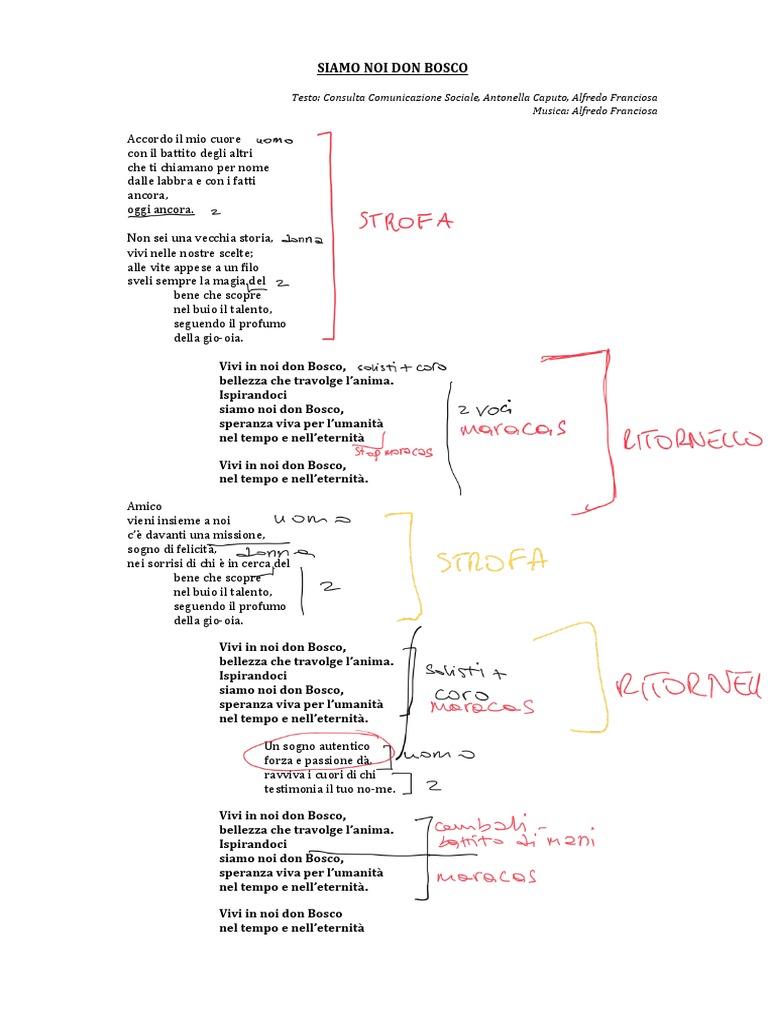 SIAMO NOI DON BOSCO
Testo: Consulta Comunicazione Sociale, Antonella Caputo, Alfredo Franciosa
Musica: Alfredo Franciosa
Accordo il mio cuore uomo
con il battito degli altri
che ti chiamano per nome
dalle labbra e con i fatti
ancora,
oggi ancora. 2
STROFA
Non sei una vecchia storia, donna
vivi nelle nostre scelte;
alle vite appese a un filo
sveli sempre la magia del 2
bene che scopre
nel buio il talento,
seguendo il profumo
della gio-oia.
Vivi in noi don Bosco, solisti + coro
bellezza che travolge l'anima.
Ispirandoci
siamo noi don Bosco, 2 voci
speranza viva per l'umanità maracas
nel tempo e nell'eternità RITORNELLO
stop maracas
Vivi in noi don Bosco,
nel tempo e nell'eternità.
Amico
vieni insieme a noi uomo
c'è davanti una missione,
sogno di felicità, donna
nei sorrisi di chi è in cerca del STROFA
bene che scopre
nel buio il talento, 2
seguendo il profumo
della gio-oia.
Vivi in noi don Bosco,
bellezza che travolge l'anima.
Ispirandoci solisti +
siamo noi don Bosco, coro RITORNELL
speranza viva per l'umanità maracas
nel tempo e nell'eternità.
Un sogno autentico
forza e passione dà, uomo
ravviva i cuori di chi
testimonia il tuo no-me. 2
Vivi in noi don Bosco,
bellezza che travolge l'anima. cembali -
Ispirandoci battito di mani
siamo noi don Bosco,
speranza viva per l'umanità maracas
nel tempo e nell'eternità.
Vivi in noi don Bosco
nel tempo e nell'eternità